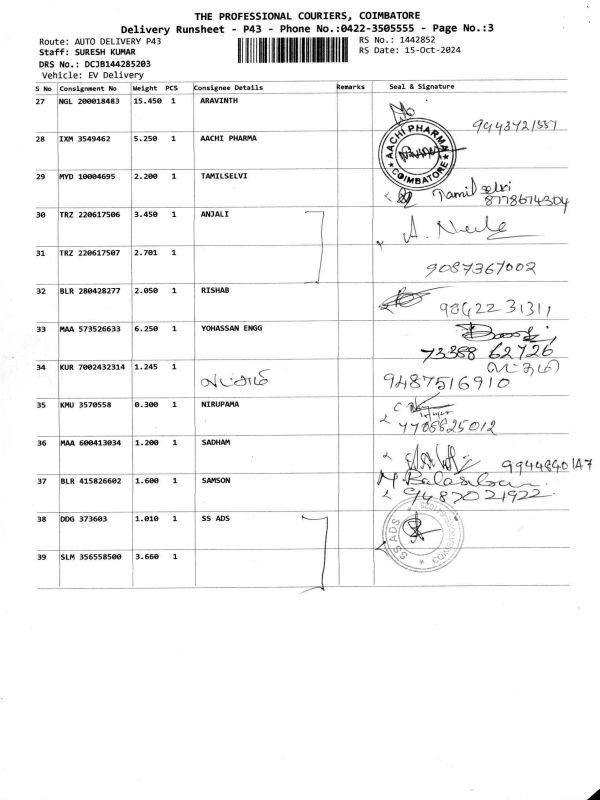 THE PROFESSIONAL COURIERS, COIMBATORE
Delivery Runsheet - P43 - Phone No.:0422-3505555 - Page No.:3
Route: AUTO DELIVERY P43
RS No.: 1442852
Staff: SURESH KUMAR
RS Date: 15-Oct-2024
DRS No.: DCJB144285203
Vehicle: EV Delivery
S No Consignment No Weight PCS Consignee Details Remarks Seal & Signature
27 NGL 200018483 15.450 1 ARAVINTH
28 IXM 3549462 5.250 1 AACHI PHARMA
AACHI PHARMA
COIMBATORE
29 MYD 10004695 2.200 1 TAMILSELVI
Tamil selvi
8778674304
30 TRZ 220617506 3.450 1 ANJALI
31 TRZ 220617507 2.701 1
9087367002
32 BLR 280428277 2.050 1 RISHAB
98422 31311
33 MAA 573526633 6.250 1 YOHASSAN ENGG
73388 62726
34 KUR 7002432314 1.245 1
9487516910
35 KMU 3570558 0.300 1 NIRUPAMA
36 MAA 600413034 1.200 1 SADHAM
9944840147
37 BLR 415826602 1.600 1 SAMSON
9487021922
38 DDG 373603 1.010 1 SS ADS
SS ADS
39 SLM 356558500 3.660 1